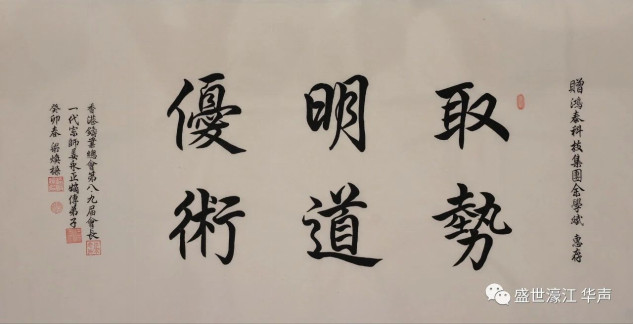 贈鴻泰科技集團余學斌 惠存
取勢
明道
優術
香港鐘業總會第八九届會長
一代宗師姜永正嫡傳弟子
癸卯春 梁煥操
盛世濠江 华声